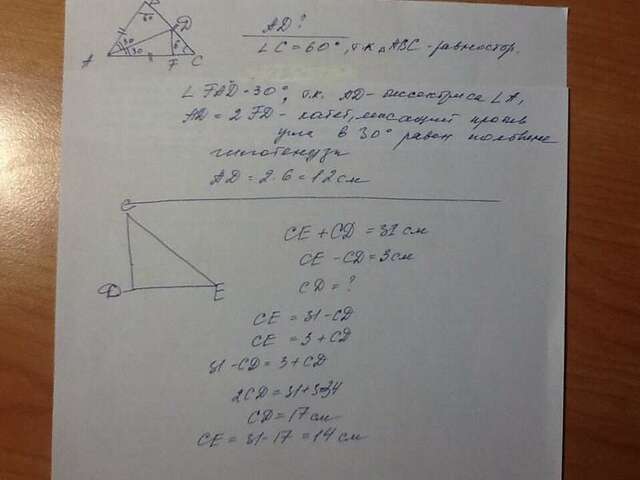 B
60
D
30
30
6
A
F
C
AD?
∠C = 60°, т.к. △ABC - равностор.
∠FAD = 30°, т.к. AD - биссектриса ∠A,
AD = 2FD - катет, лежащий против
угла в 30° равен половине
гипотенузы
AD = 2·6 = 12 см
C
D
E
CE + CD = 31 см
CE - CD = 3 см
CD = ?
CE = 31 - CD
CE = 3 + CD
31 - CD = 3 + CD
2CD = 31+3=34
CD = 17 см
CE = 31 - 17 = 14 см